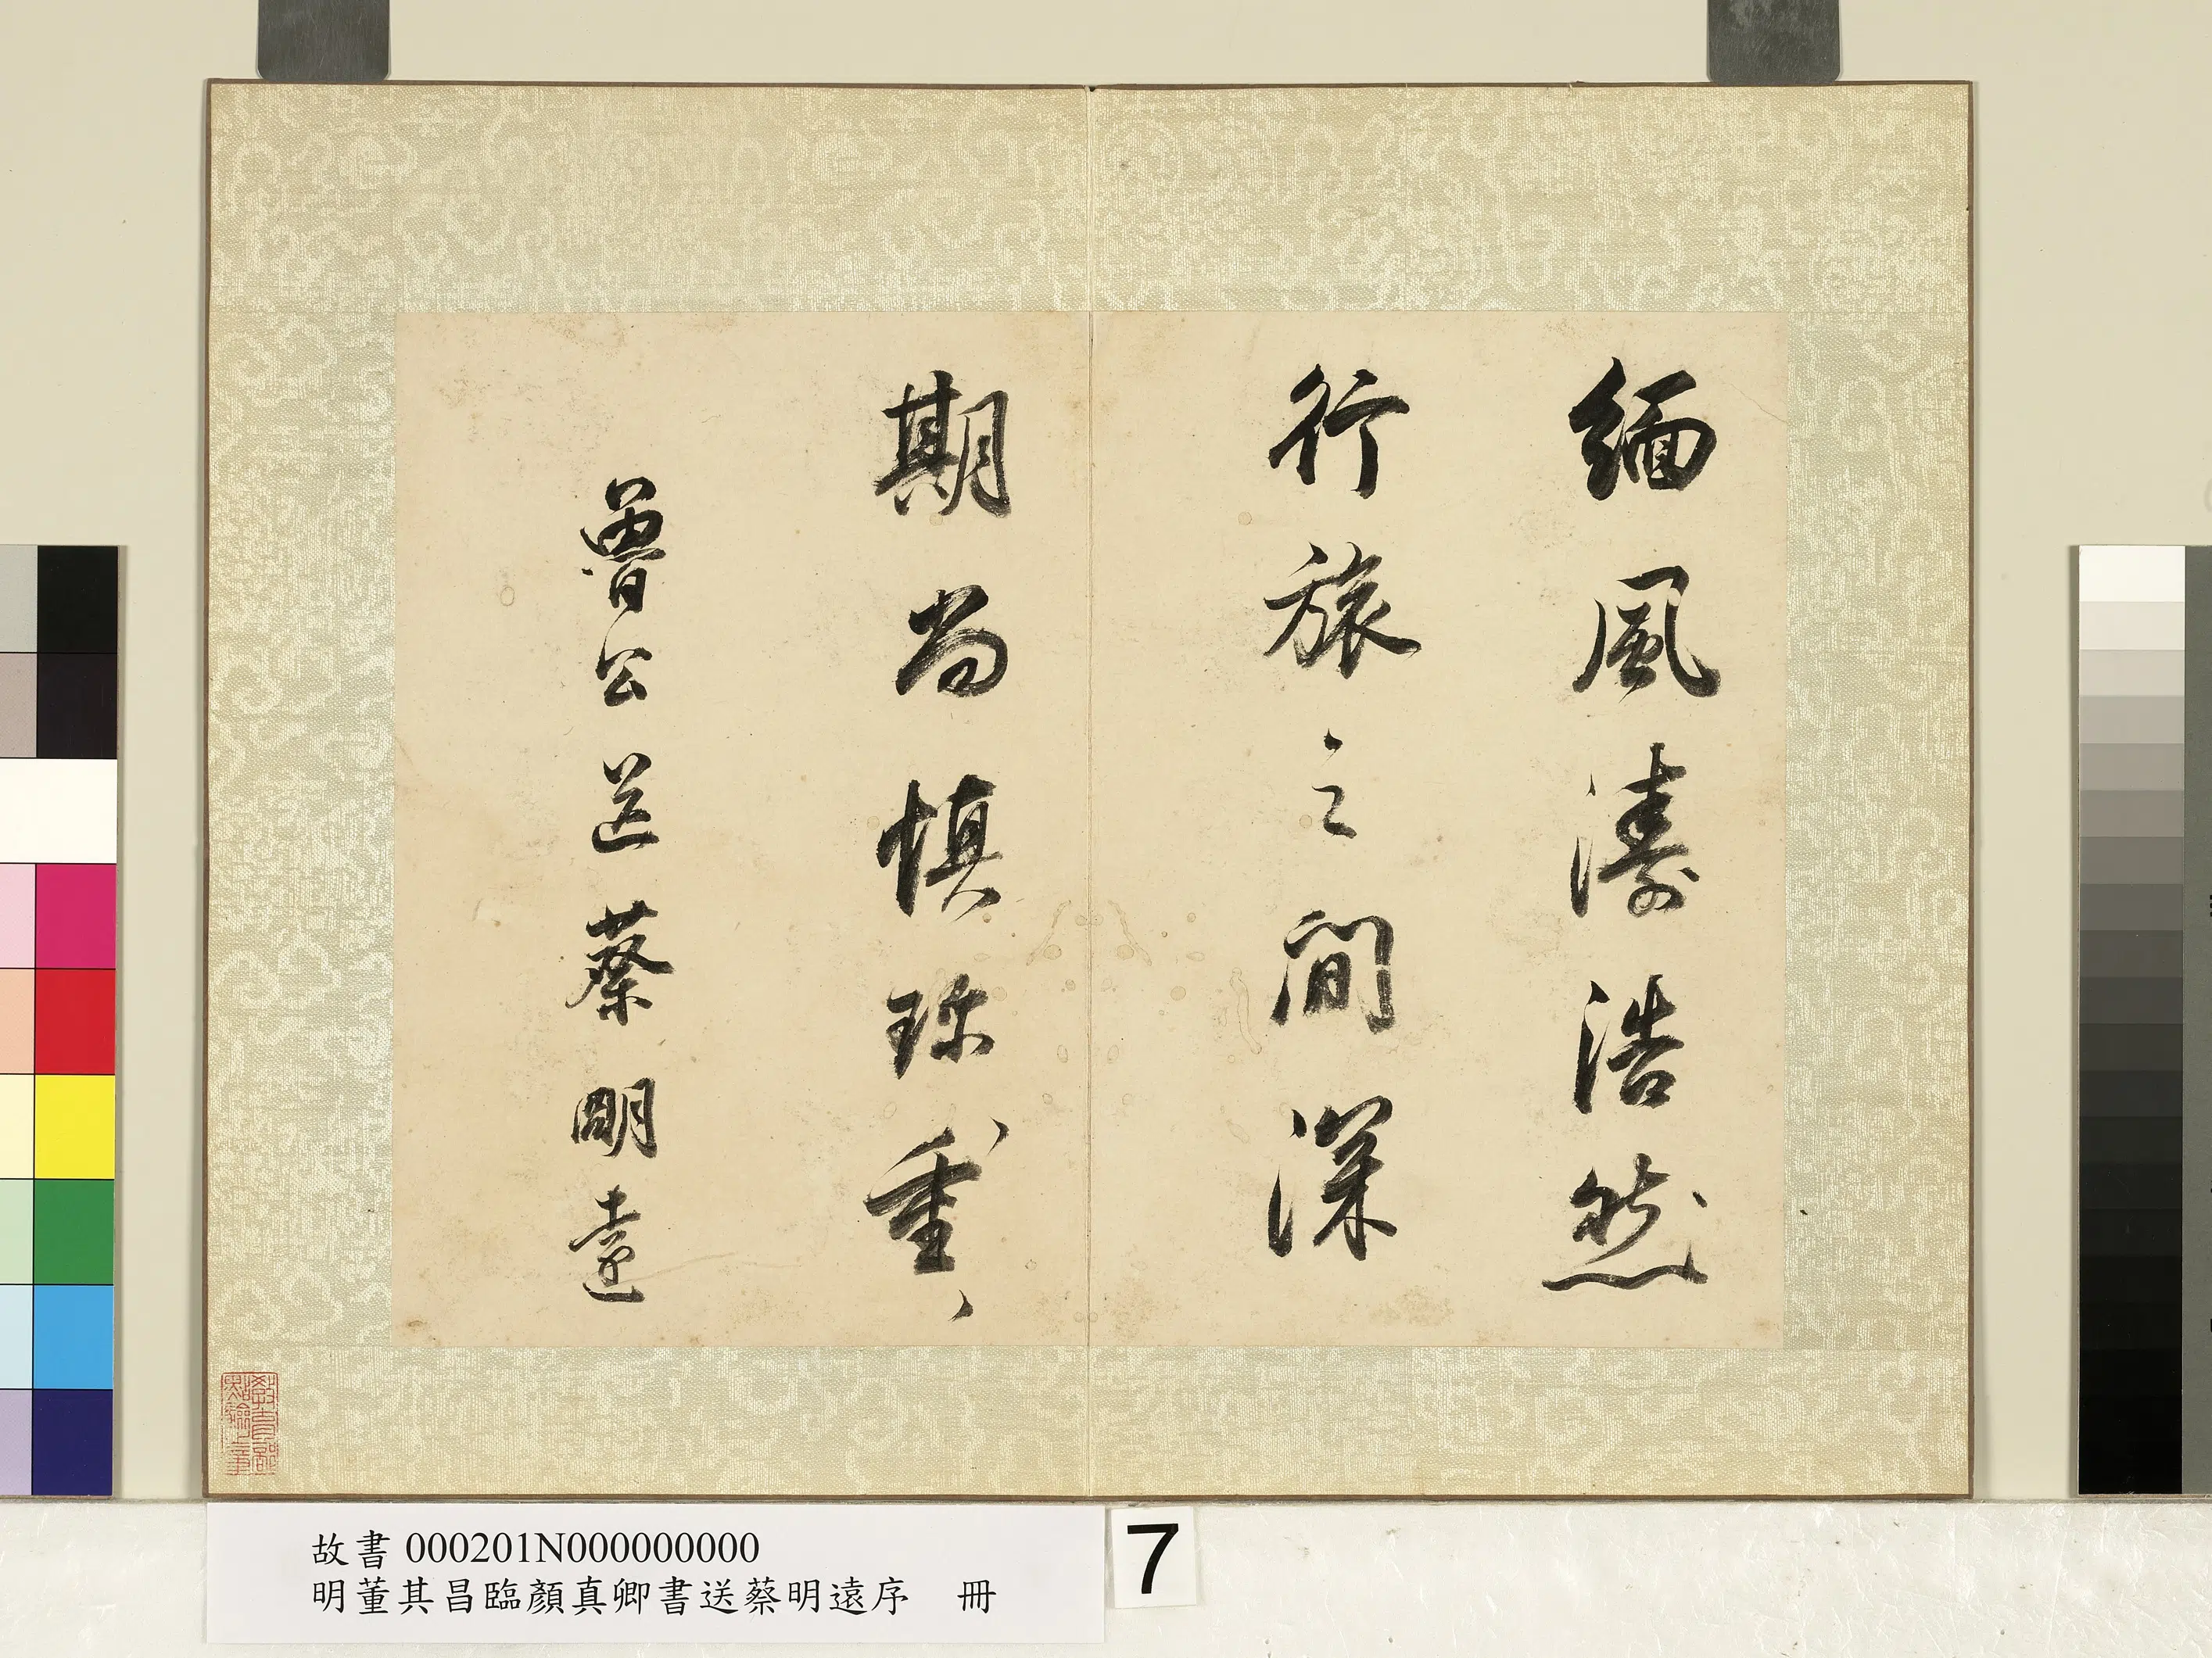 緬風濤浩然
行旅之間深
期尚慎珍重〻
魯公送蔡明遠
教育部
點驗之章
故書000201N000000000
明董其昌臨顏真卿書送蔡明遠序 冊
7